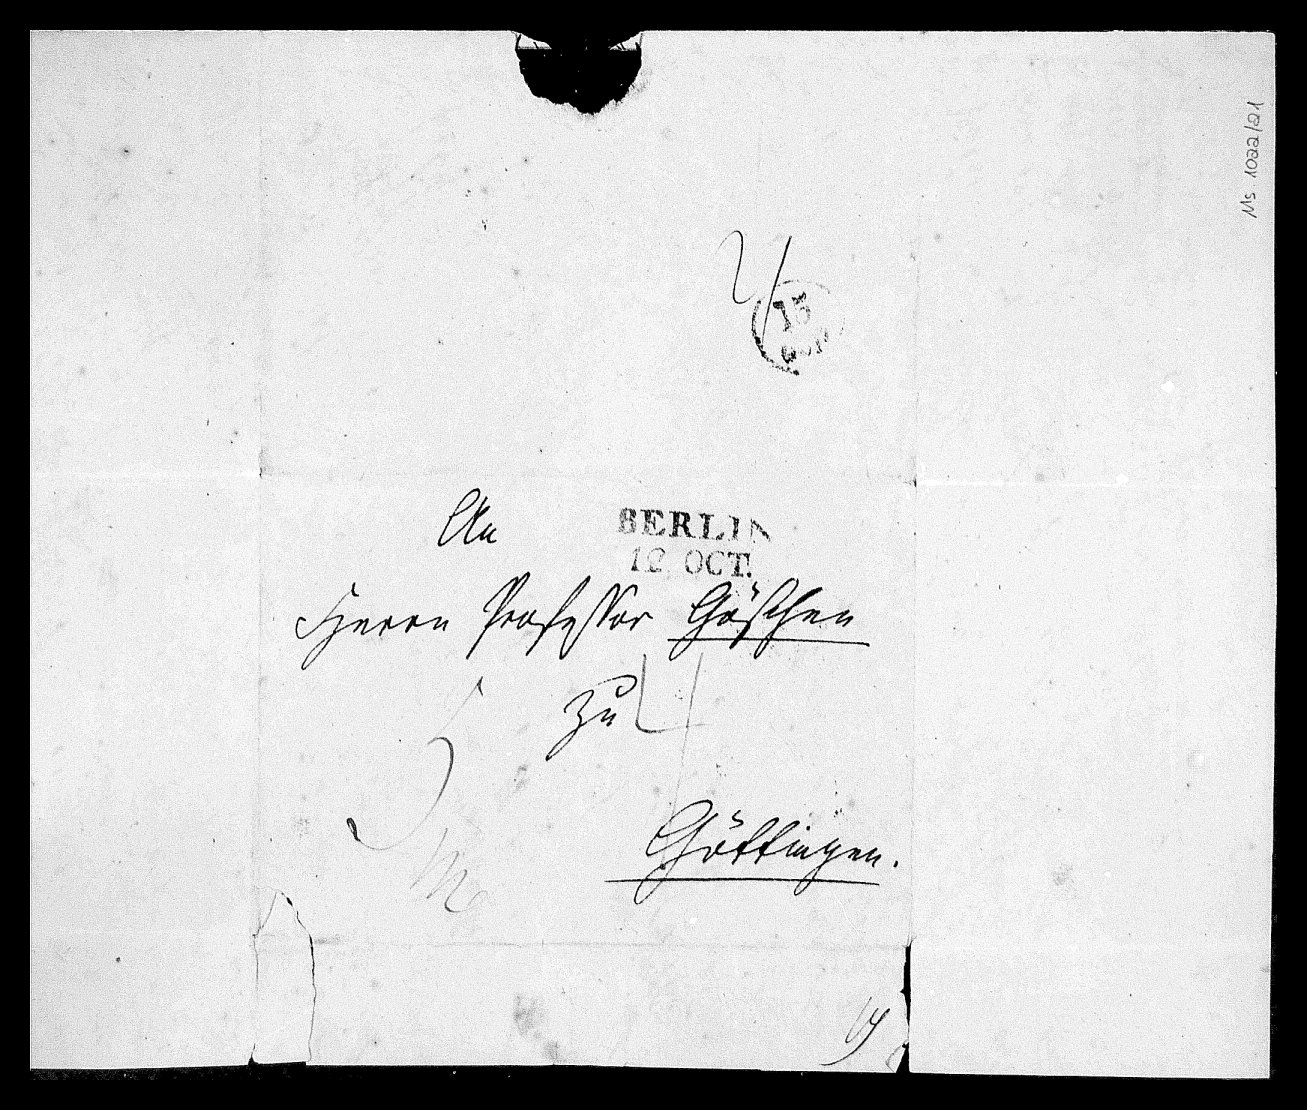 Ms 1022/21
15
An
BERLIN
12 OCT.
Herrn Professor Göschen
zu
Göttingen.